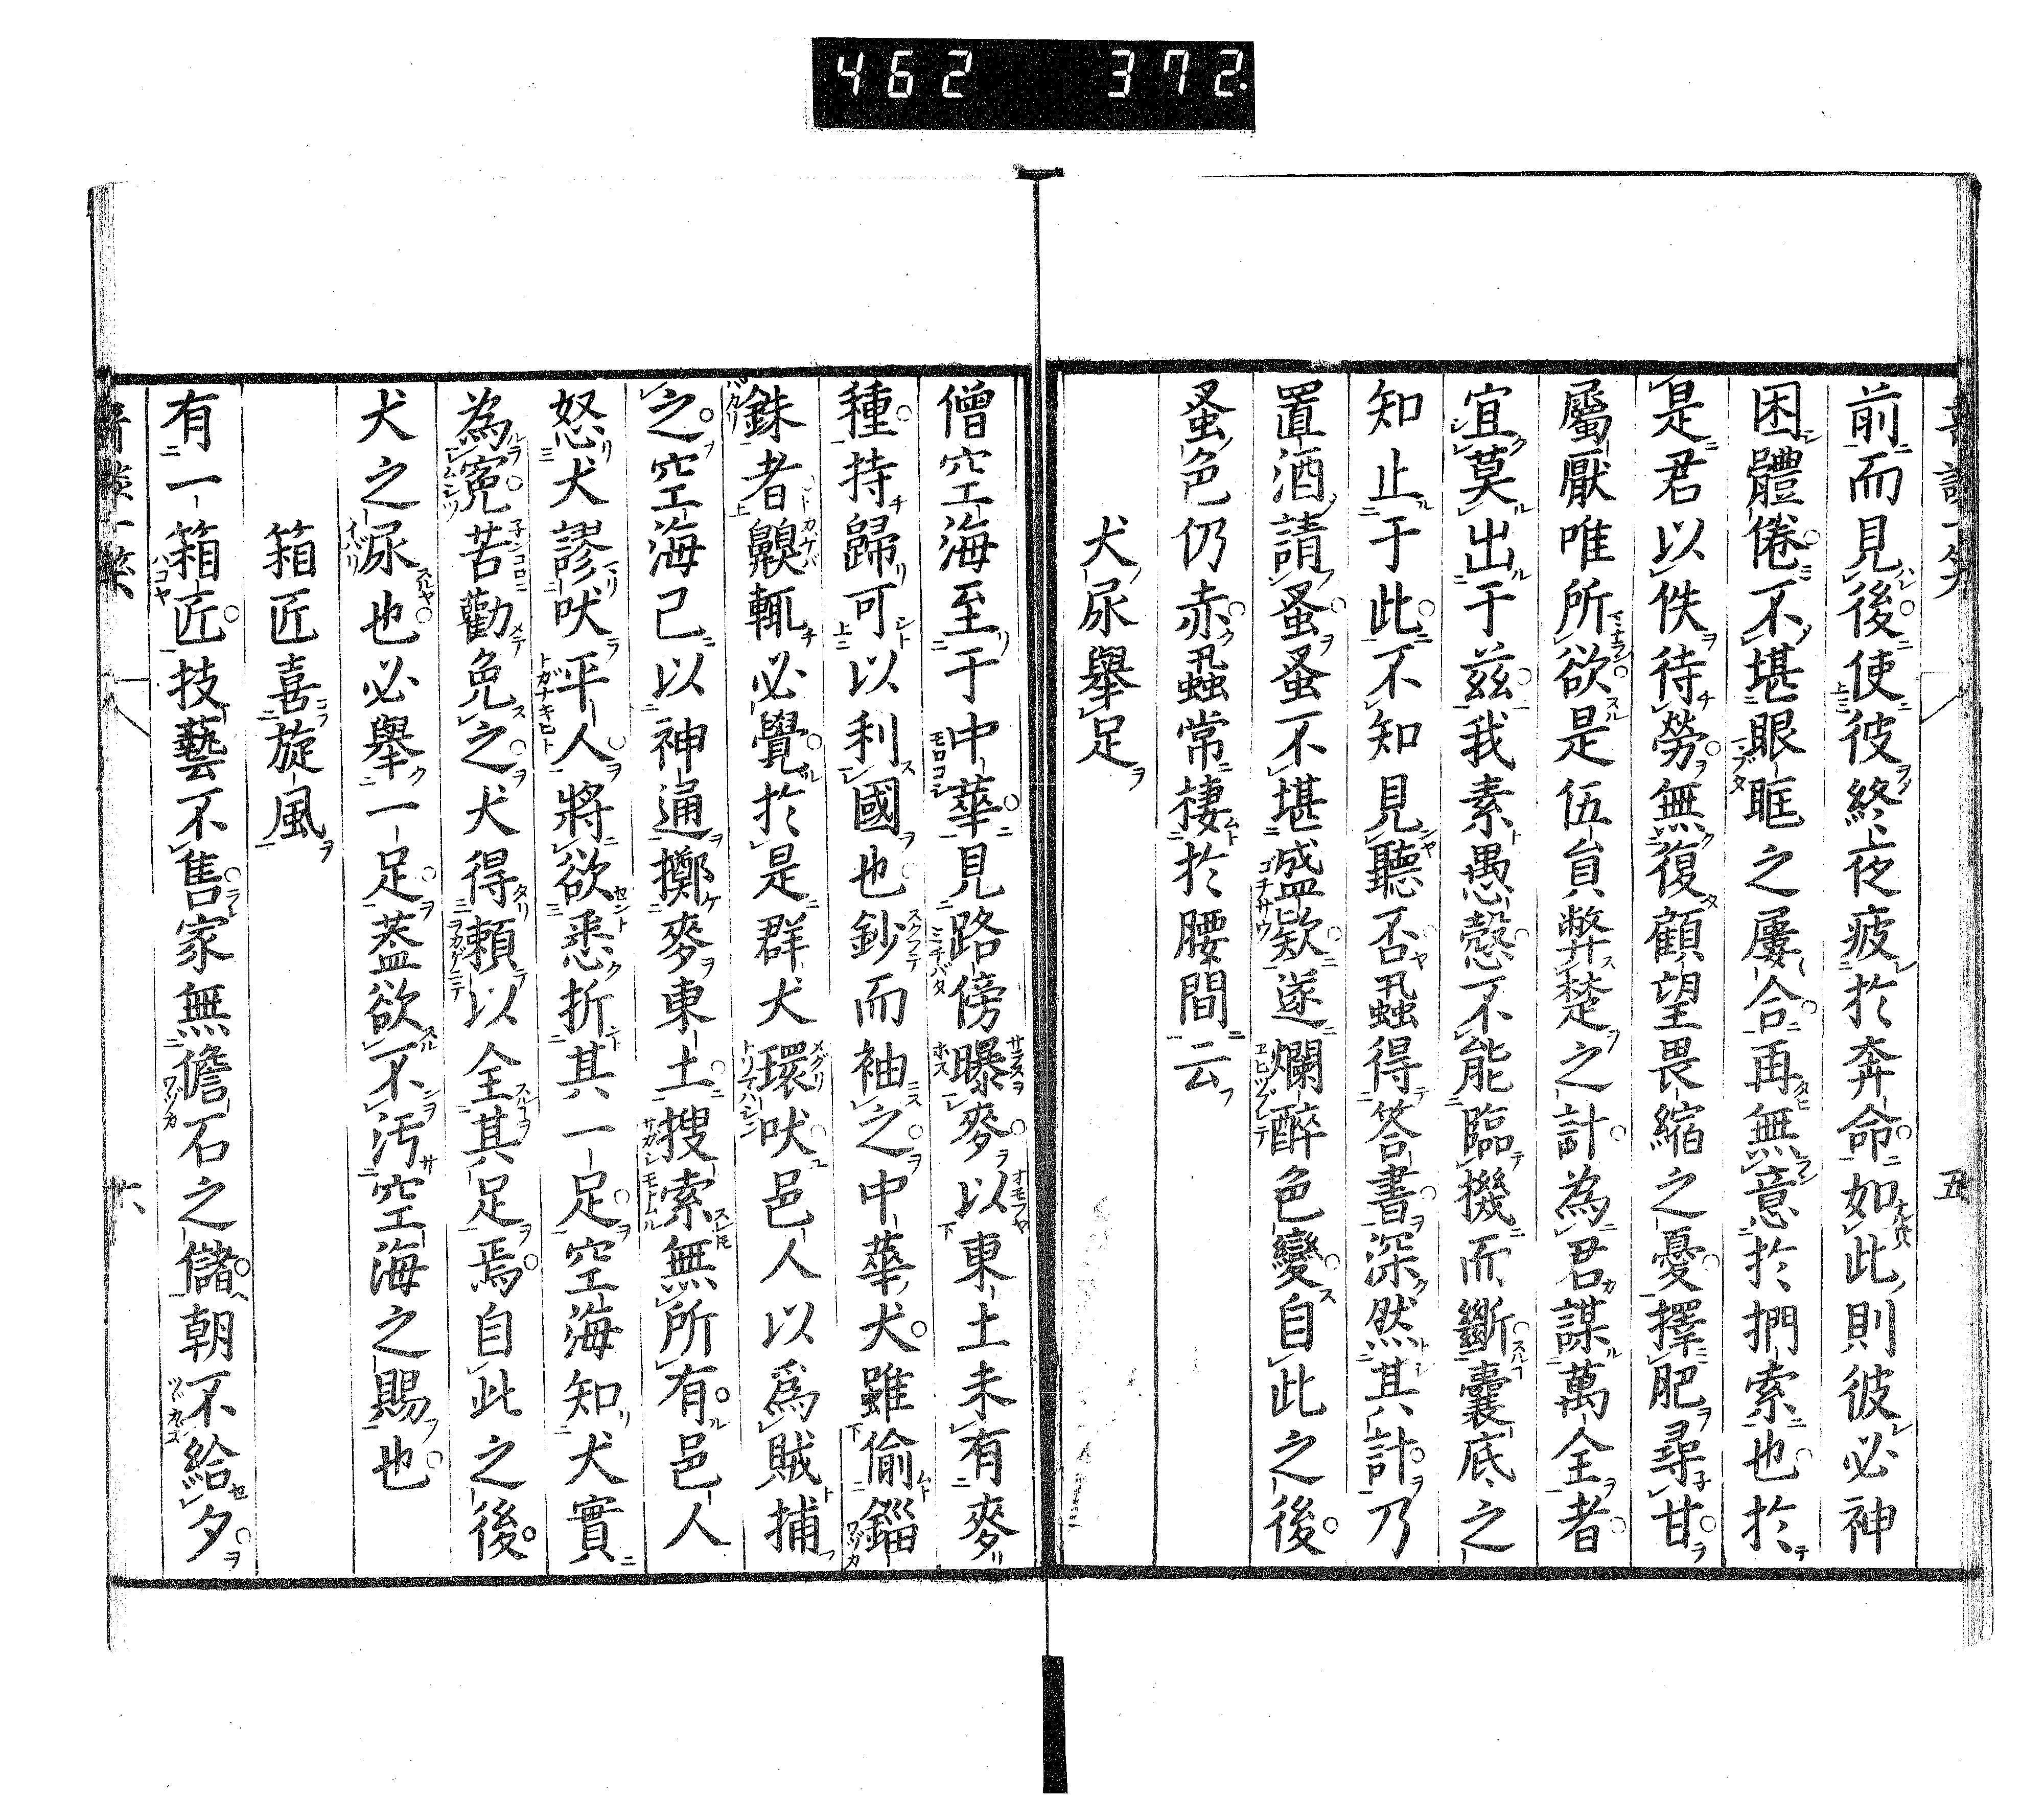 462 372.
前而見後使彼終夜疲於奔命如此則彼必神
困體倦不堪眼眶之屢合再無意於捫索也於
是君以佚待勞無復顧望畏縮之憂擇肥尋甘
屬厭唯所欲是伍員弊楚之計為君謀萬全者
宜莫出于茲我素愚愨不能臨機而斷囊底之
知止于此不知見聽否蝨得答書深然其計乃
置酒請蚤蚤不堪盛欵遂爛醉色變自此之後
蚤色仍赤蝨常棲於腰間云
犬尿舉足
僧空海至于中華見路傍曝麥以東土未有麥
種持歸可以利國也鈔而袖之中華犬雖偷錙
銖者齅輒必覺於是群犬環吠邑人以爲賊捕
之空海已以神通擲麥東土搜索無所有邑人
怒犬謬吠平人將欲悉折其一足空海知犬實
為寃苦勸免之犬得賴以全其足焉自此之後
犬之尿也必舉一足蓋欲不汚空海之賜也
箱匠喜旋風
有一箱匠技藝不售家無儋石之儲朝不給夕